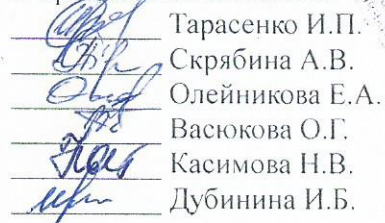 Тарасенко И.П.
Скрябина А.В.
Олейникова Е.А.
Васюкова О.Г.
Касимова Н.В.
Дубинина И.Б.